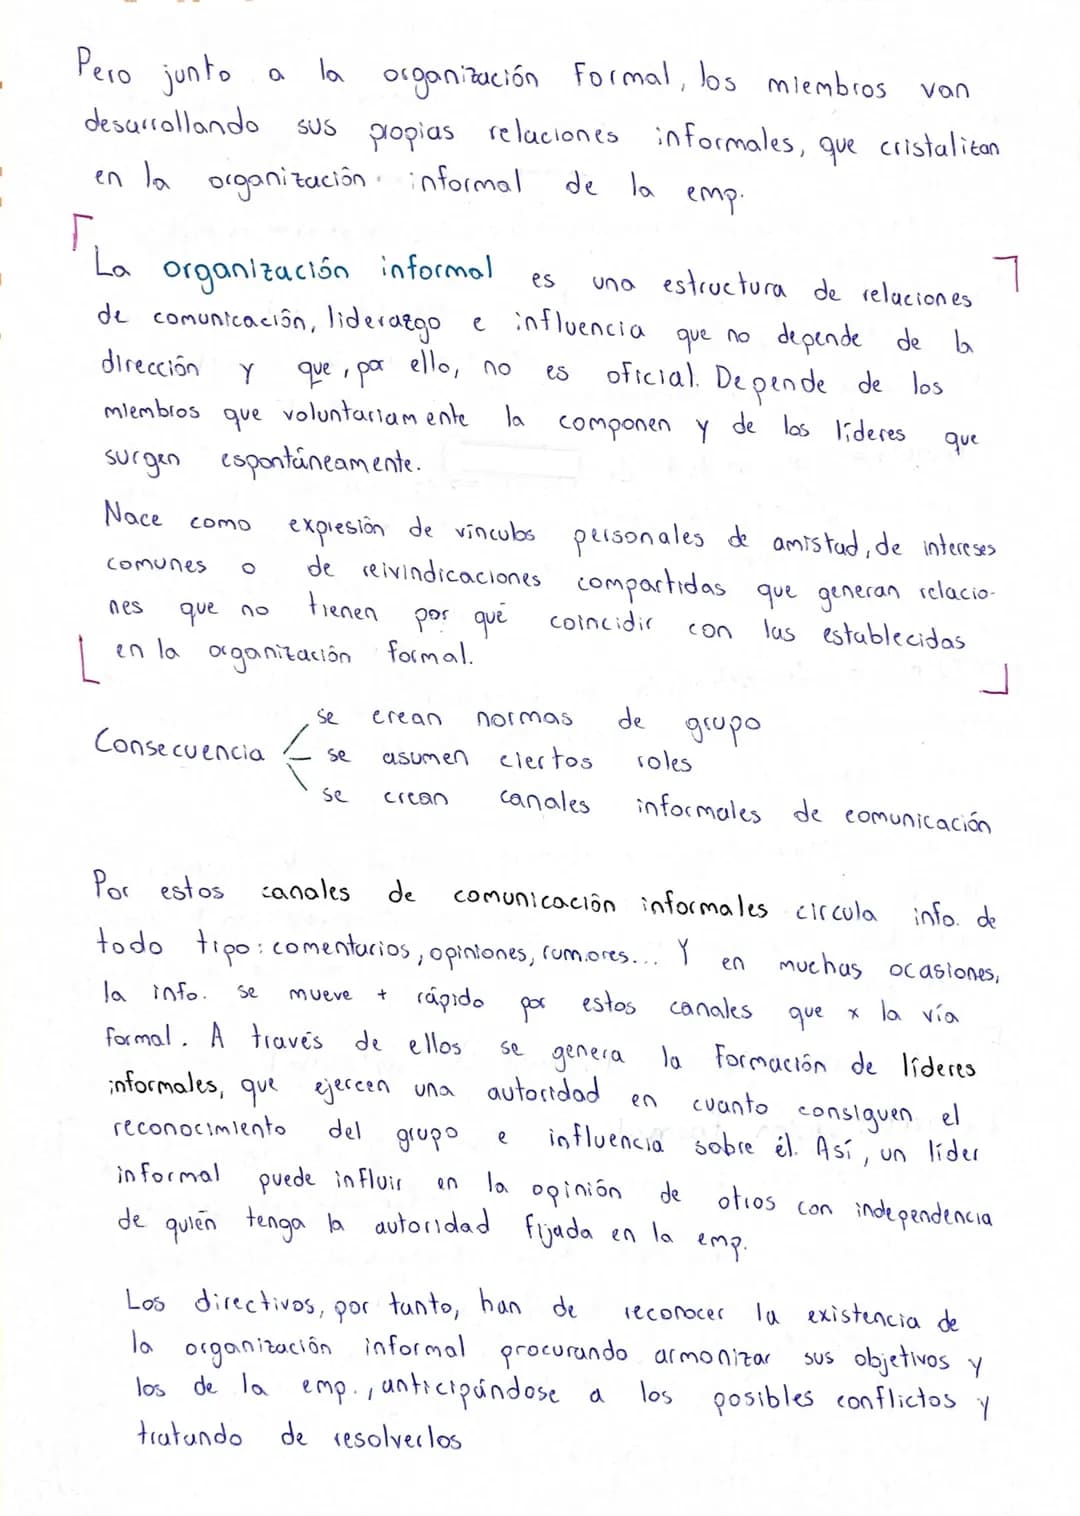 Pero junto a la organización formal, los miembros van
desarrollando sus propias relaciones informales, que cristalizan
en la organización informal de la emp.
La organización informal es una estructura de relaciones
de comunicación, liderazgo e influencia que no depende de la
dirección y que, por ello, no es oficial. Depende de los
miembros que voluntariamente la componen y de los líderes que
surgen espontáneamente.
Nace como expresión de vínculos personales de amistad, de intereses
comunes o de reivindicaciones compartidas que generan relacio-
nes que no tienen por qué coincidir con las establecidas
en la organización formal.
se crean normas de grupo
Consecuencia se asumen ciertos roles
se crean canales informales de comunicación
Por estos canales de comunicación informales circula info. de
todo tipo: comentarios, opiniones, rumores... Y en muchas ocasiones,
la info. se mueve + rápido por estos canales que x la vía
formal. A través de ellos se genera la formación de líderes
informales, que ejercen una autoridad en cuanto consiguen el
reconocimiento del grupo e influencia sobre él. Así, un líder
informal puede influir en la opinión de otros con independencia
de quién tenga la autoridad fijada en la emp.
Los directivos, por tanto, han de reconocer la existencia de
la organización informal procurando armonizar sus objetivos y
los de la emp., anticipándose a los posibles conflictos y
tratando de resolverlos